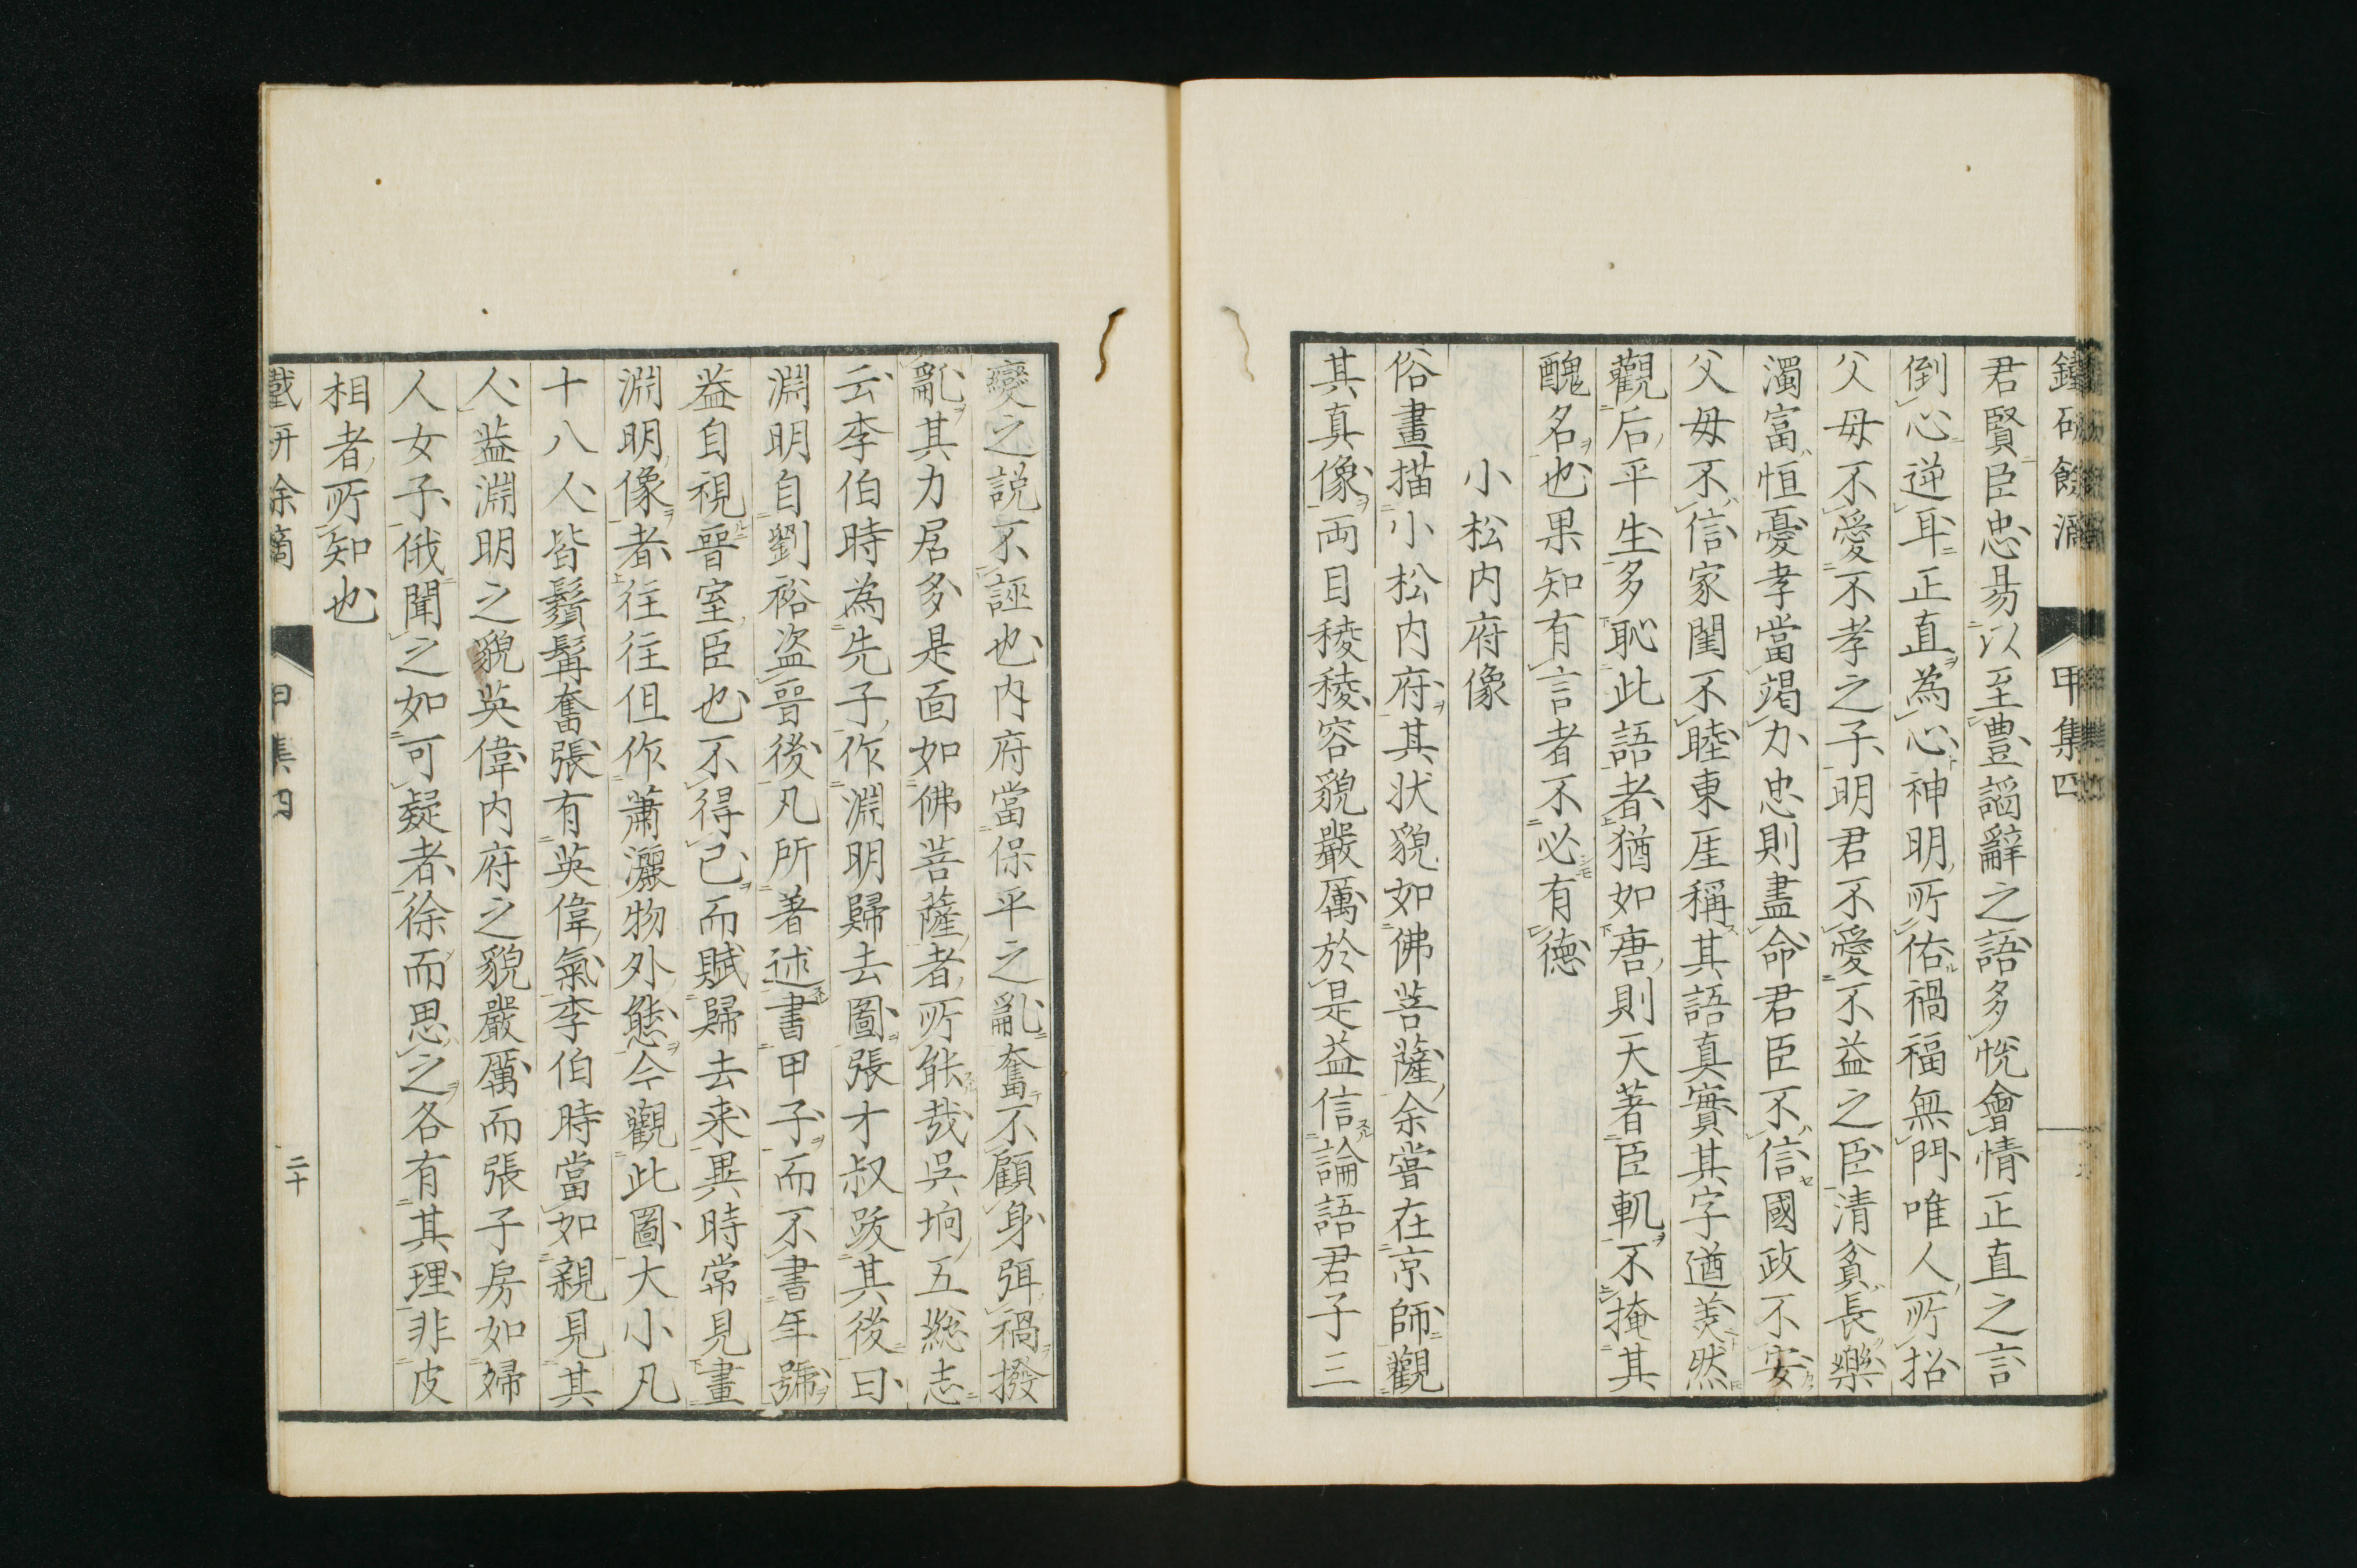 鐵研餘滴 甲集四
君賢臣忠易以至豊謟辭之語多恱會情正直之言
倒心逆耳正直為心神明所佑禍福無門唯人所招
父母不愛不孝之子明君不愛不益之臣清貧長樂
濁富恒憂孝當竭力忠則盡命君臣不信國政不安
父毋不信家閨不睦東厓稱其語真實其字遒美然
觀后平生多恥此語者猶如唐則天著臣軌不掩其
醜名也果知有言者不必有德
小松内府像
俗畫描小松内府其状貌如佛菩薩余嘗在京師觀
其真像両目稜稜容貌嚴厲於是益信論語君子三
變之説不誣也内府當保平之亂奮不顧身弭禍撥
亂其力居多是面如佛菩薩者所能哉呉坰五緫志
云李伯時為先子作淵明歸去圖張才叔跋其後曰
淵明自劉裕盗晉後凡所著述書甲子而不書年號
益自視晉室臣也不得已而賦歸去来異時常見畫
淵明像者往往但作蕭灑物外態今觀此圖大小凡
十八人皆鬚髯奮張有英偉氣李伯時當如親見其
人益淵明之貌英偉内府之貌嚴厲而張子房如婦
人女子俄聞之如可疑者徐而思之各有其理非皮
相者所知也
甲集四 二十